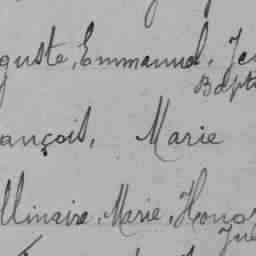 guste, Emmanuel, Je
Bapt
ançois, Marie
llinaire, Marie, Honor